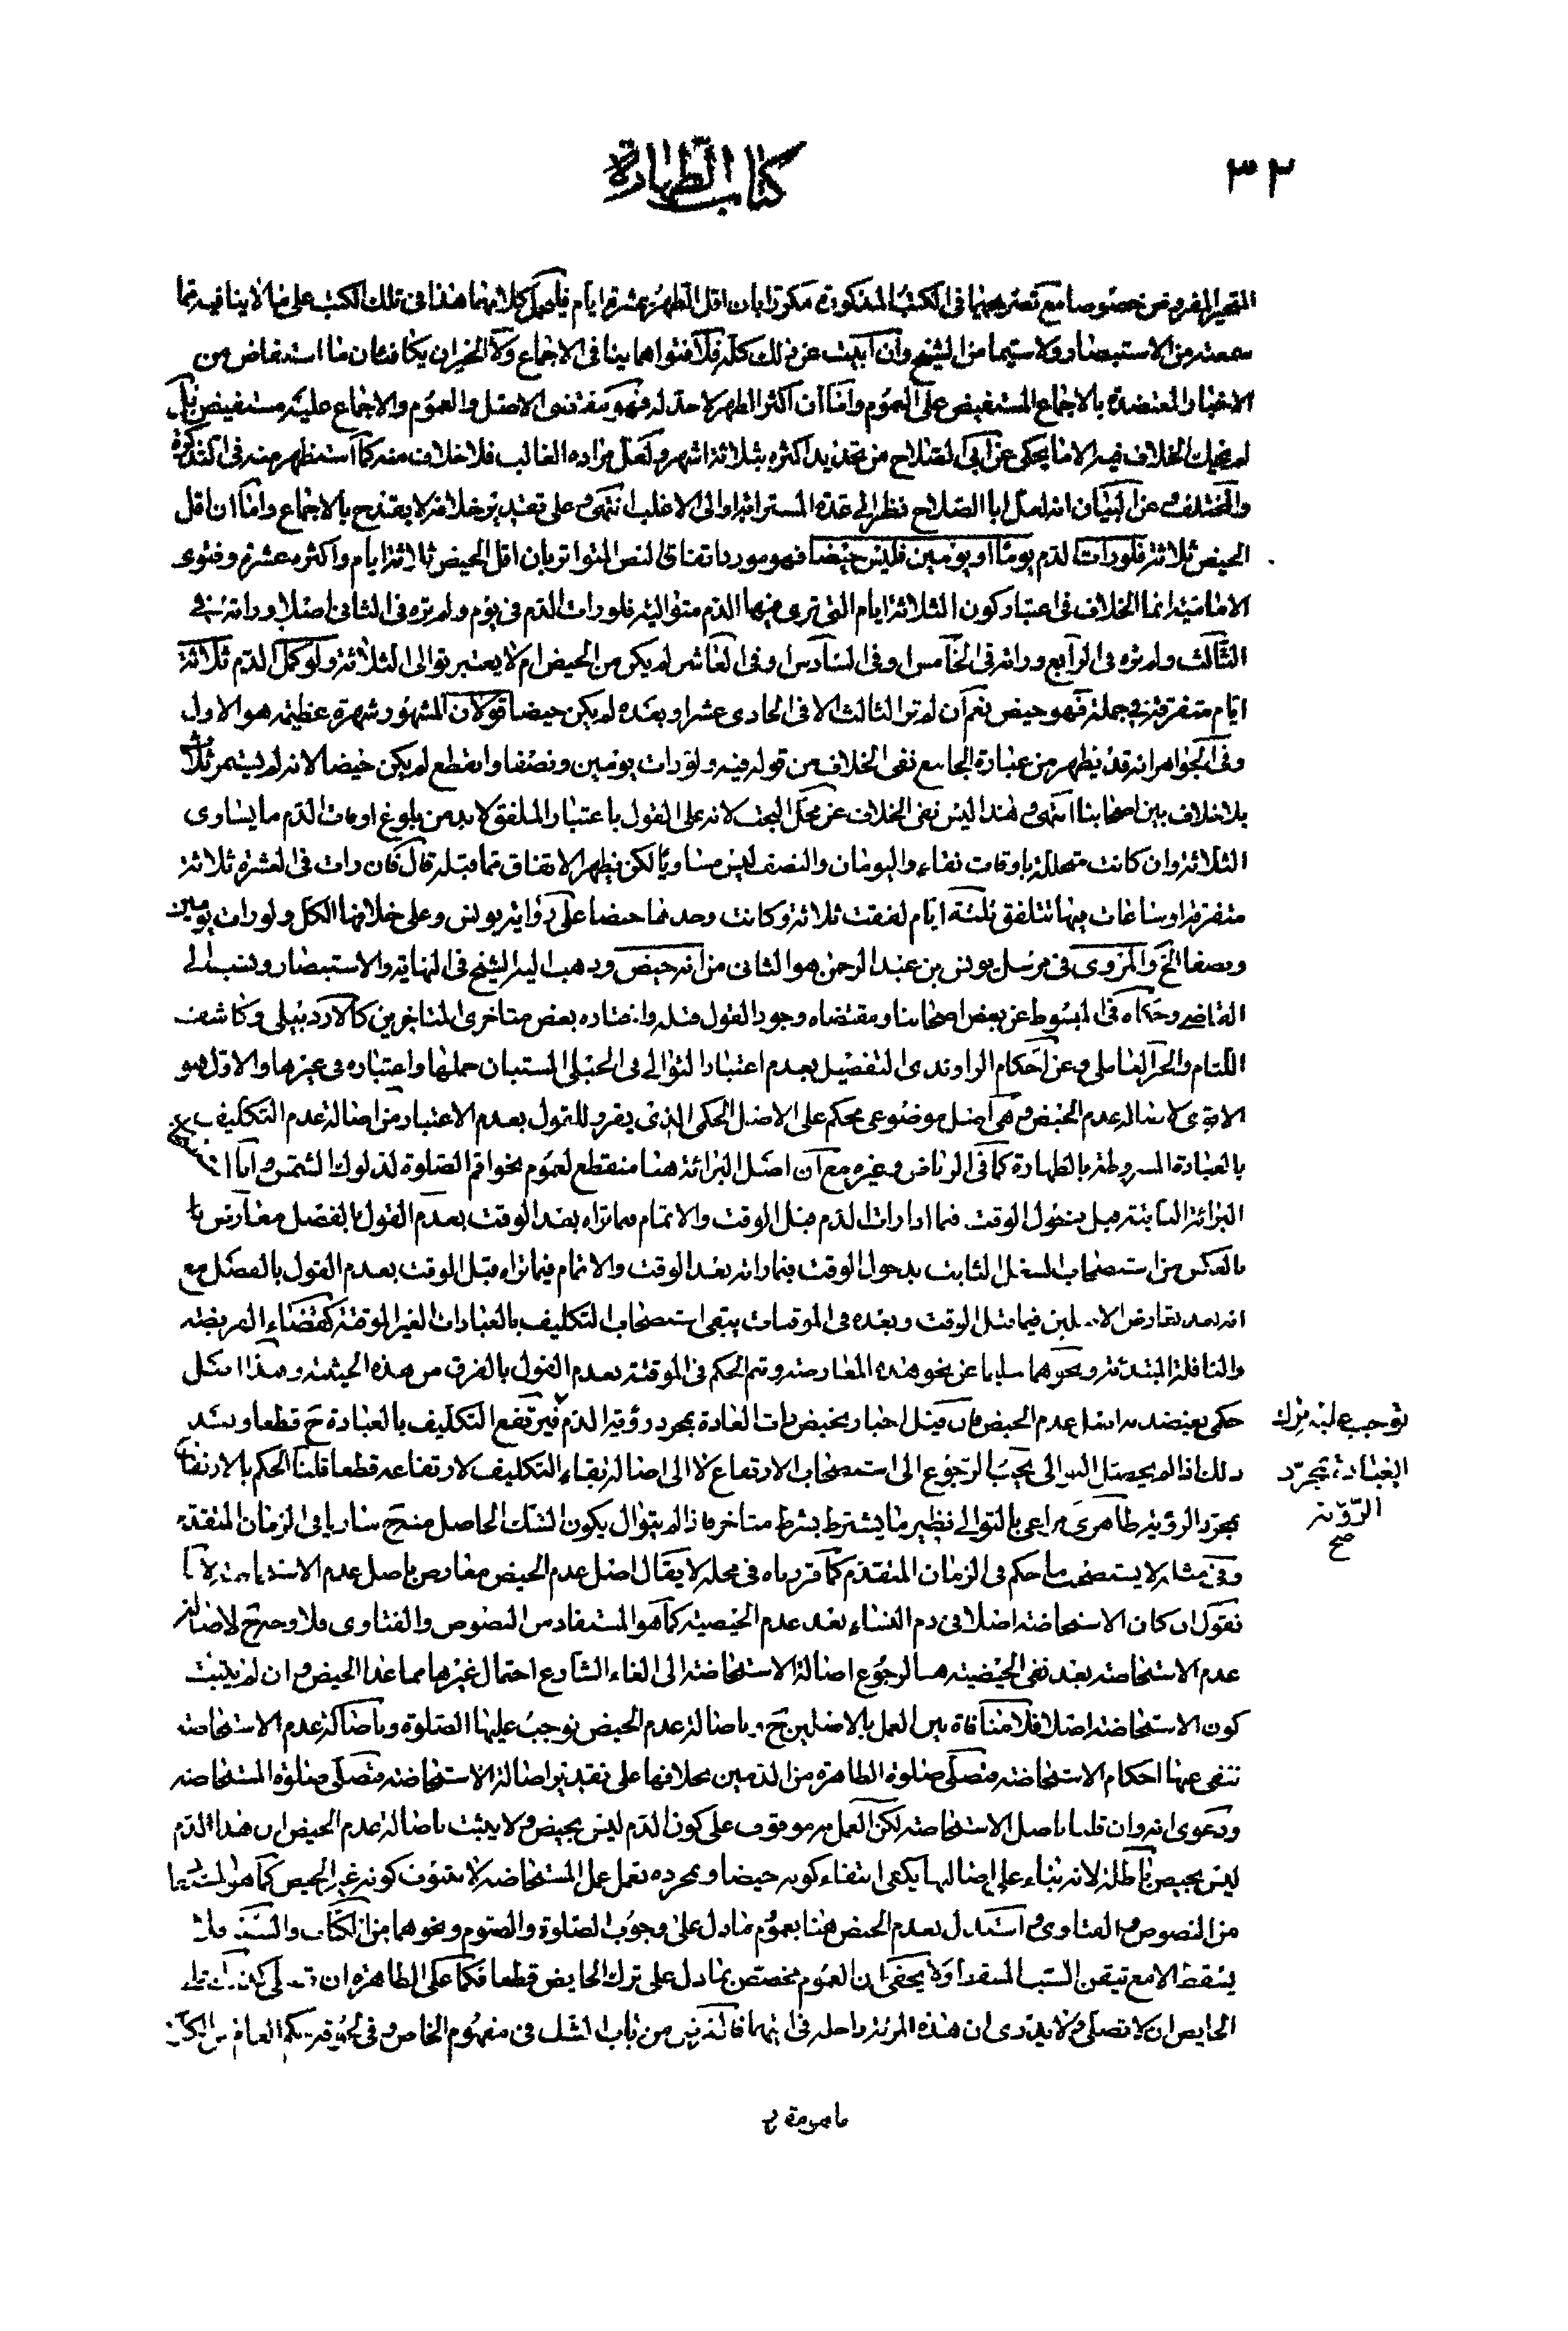 ٣٢
كتاب الطهارة
خصوصا مع تصريحهما في الكتب المذكورة مكررا بان اقل الطهر عشرة ايام فليحمل كلامهما هذا في تلك الكتب على ما لا ينافيه مما
سمعته من الاستبصار ولا سيما من الشيخ وان ابيت عن ذلك كله فلا فتواهما ينافى الاجماع ولا الخبران يكافئان ما استفاض من
الاخبار المعتضدة بالاجماع المستفيض على العموم واما ان اكثر الطهر لا حد له فهو مقتضى الاصل والعموم والاجماع عليه مستفيض بل
لم يحك الخلاف فيه الا ما يحكى عن ابى الصلاح من تحديد اكثره بثلاثة اشهر ولعل مراده الغالب فلا خلاف منه كما استظهر منه في التذكرة
والمختلف وعن البيان انه لعل ابا الصلاح نظر الى عدة المسترابة او الى الاغلب انتهى وعلى تقدير خلافه لا يقدح بالاجماع واما ان اقل
الحيض ثلاثة فلو رات الدم يوما او يومين فليس حيضا فهو مورد اتفاق النص المتواتر بان اقل الحيض ثلاثة ايام واكثره عشرة وفتوى
الامامية انما الخلاف في اعتبار كون الثلاثة ايام التي ترى فيها الدم متوالية فلو رات الدم في يوم ولم تره في الثانى اصلا وراته في
الثالث ولم تره في الرابع وراته في الخامس او في السادس او في العاشر لم يكن من الحيض ام لا يعتبر توالى الثلاثة ولو كمل الدم ثلاثة
ايام متفرقة في جملة فهو حيض نعم ان لم تر الثالث الا في الحادى عشر او بعده لم يكن حيضا قولان المشهور شهرة عظيمة هو الاول
وفي الجواهر انه قد يظهر من عبارة الجامع نفى الخلاف من قوله فيه ولو رات يومين ونصفا وانقطع لم يكن حيضا لانه لم يستمر ثلثا
بلا خلاف بين اصحابنا انتهى وهذا ليس نفى الخلاف عن محل البحث لانه على القول باعتبار الملفق لابد من بلوغ اوقات الدم ما يساوى
الثلاثة وان كانت متخللة باوقات نقاء واليومان والنصف ليس مساويا لكن يظهر الاتفاق مما قبله قال فان رات في العشرة ثلاثة
متفرقة او ساعات فيها تتلفق ثلثة ايام لفقت ثلاثة وكانت وحدها حيضا على رواية يونس وعلى خلافها الكل ولو رات يومين
ونصفا الخ والمروى في مرسل يونس بن عبد الرحمن هو الثانى من انه حيض وذهب اليه الشيخ في النهاية والاستبصار ونسب الى
القاضي وحكاه في المبسوط عن بعض اصحابنا ومقتضاه وجود القول قبله واختاره بعض متاخرى المتاخرين كالاردبيلى وكاشف
اللثام والحر العاملى وعن احكام الراوندى التفصيل بعدم اعتبار التوالى في الحبلى المستبان حملها واعتباره في غيرها والاول هو
الاقوى لاصالة عدم الحيض وهى اصل موضوعى محكم على الاصل الحكمى الذى يقرر للقول بعدم الاعتبار من اصالة عدم التكليف
بالعبادة المشروطة بالطهارة كما في الرياض وغيره مع ان اصل البرائة هنا منقطع لعموم نحو اقم الصلوة لدلوك الشمس واما
البرائة الثابتة قبل دخول الوقت فيما اذا رات الدم قبل الوقت والاتمام فيما تراه بعد الوقت بعدم القول بالفصل معارض
بالعكس من استصحاب الشغل الثابت بدخول الوقت فيما راته بعد الوقت والاتمام فيما تراه قبل الوقت بعدم القول بالفصل مع
انه بعد تعارض الاصلين فيما قبل الوقت وبعده في الموقتات يبقى استصحاب التكليف بالعبادات الغير الموقتة كقضاء الفريضة
والنافلة المبتدئة ونحوهما سليما عن نحو هذه المعارضة ويتم الحكم في الموقتة بعدم القول بالفرق من هذه الحيثية وهذا اصل
حكمى يعتضد به اصل عدم الحيض فان قيل اخبار تحيض ذات العادة بمجرد رؤية الدم فيرتفع التكليف بالعبادة ح قطعا وبعد
ذلك اذا لم يحصل التوالى يجب الرجوع الى استصحاب الارتفاع لا الى اصالة بقاء التكليف لارتفاعه قطعا قلنا الحكم بالارتفاع
بمجرد الرؤية ظاهرى مراعى بالتوالى نظير ما يشترط بشرط متاخر فاذا لم يتوال يكون الشك الحاصل منه ح ساريا في الزمان المتقدم
وفي مثله لا يستصحب ما حكم في الزمان المتقدم كما قررناه في محله لا يقال اصل عدم الحيض معارض باصل عدم الاستحاضة لانا
نقول ان كان الاستحاضة اصلا في دم النساء بعد عدم الحيضية كما هو المستفاد من النصوص والفتاوى فلا وجه ح لاصالة
عدم الاستحاضة بعد نفى الحيضية هنا لرجوع اصالة الاستحاضة الى الغاء الشارع احتمال غيرها مما عدا الحيض وان لم يثبت
كون الاستحاضة اصلا فلا منافاة بين العمل بالاصلين ح فباصالة عدم الحيض نوجب عليها الصلوة وباصالة عدم الاستحاضة
ننفى عنها احكام الاستحاضة فتصلى صلوة الطاهرة من الدمين بخلافها على تقدير اصالة الاستحاضة فتصلى صلوة المستحاضة
ودعوى انه وان قلنا باصل الاستحاضة لكن العمل به موقوف على كون الدم ليس بحيض ولا يثبت باصالة عدم الحيض ان هذا الدم
ليس بحيض باطلة لانه بناء على اصالتها يكفى انتفاء كونه حيضا وبمجرده تعمل عمل المستحاضة لا بتوقف كونه غير الحيض كما هو المستفاد
من النصوص والفتاوى واستدل بعدم الحيض هنا بعموم ما دل على وجوب الصلوة والصوم ونحوهما من الكتاب والسنة
يسقط الا مع تيقن السبب المسقط ولا يخفى ان العموم مخصص بما دل على ترك الحايض قطعا فكما على الطاهرة ان تصلى كذلك على
الحايض ان لا تصلى ولا يدرى ان هذه المرئة داخلة في ايهما فالتمسك من باب الشك في مفهوم الخاص
توجب عليه ترك
العبادة بمجرد
الرؤية
صح